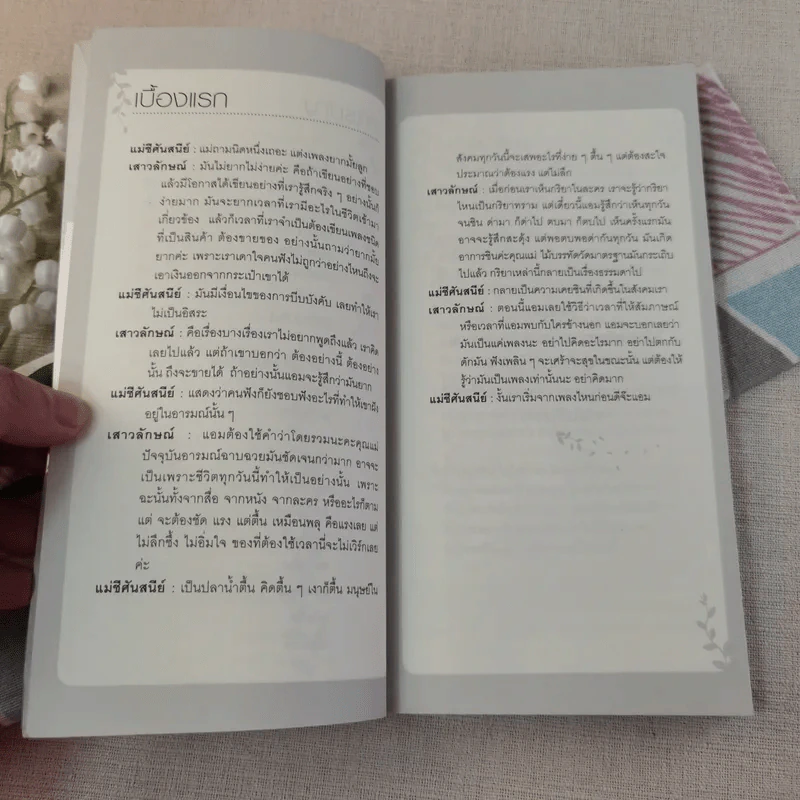 เบื้องแรก
แม่ชีศันสนีย์ : แม่ถามนิดหนึ่งเถอะ แต่งเพลงยากมั้ยลูก
เสาวลักษณ์ : มันไม่ยากไม่ง่ายค่ะ คือถ้าเขียนอย่างที่ชอบ
แล้วมีโอกาสได้เขียนอย่างที่เรารู้สึกจริง ๆ อย่างนั้นก็
ง่ายมาก มันจะยากเวลาที่เรามีอะไรในชีวิตเข้ามา
เกี่ยวข้อง แล้วก็เวลาที่เราจำเป็นต้องเขียนเพลงชนิด
ที่เป็นสินค้า ต้องขายของ อย่างนั้นถามว่ายากมั้ย
ยากค่ะ เพราะเราเดาใจคนฟังไม่ถูกว่าอย่างไหนถึงจะ
เอาเงินออกจากกระเป๋าเขาได้
แม่ชีศันสนีย์ : มันมีเงื่อนไขของการบีบบังคับ เลยทำให้เรา
ไม่เป็นอิสระ
เสาวลักษณ์ : คือเรื่องบางเรื่องเราไม่อยากพูดถึงแล้ว เราคิด
เลยไปแล้ว แต่ถ้าเขาบอกว่า ต้องอย่างนี้ ต้องอย่าง
นั้น ถึงจะขายได้ ถ้าอย่างนั้นแอมจะรู้สึกว่ามันยาก
แม่ชีศันสนีย์ : แสดงว่าคนฟังก็ยังชอบฟังอะไรที่ทำให้เขาฝัง
อยู่ในอารมณ์นั้น ๆ
เสาวลักษณ์ : แอมต้องใช้คำว่าโดยรวมนะคะคุณแม่
ปัจจุบันอารมณ์ฉาบฉวยมันชัดเจนกว่ามาก อาจจะ
เป็นเพราะชีวิตทุกวันนี้ทำให้เป็นอย่างนั้น เพราะ
ฉะนั้นทั้งจากสื่อ จากหนัง จากละคร หรืออะไรก็ตาม
แต่ จะต้องชัด แรง แต่ตื้น เหมือนพลุ คือแรงเลย แต่
ไม่ลึกซึ้ง ไม่อิ่มใจ ของที่ต้องใช้เวลานี่จะไม่เวิร์กเลย
ค่ะ
แม่ชีศันสนีย์ : เป็นปลาน้ำตื้น คิดตื้น ๆ เงาก็ตื้น มนุษย์ใน
สังคมทุกวันนี้จะเสพอะไรที่ง่าย ๆ ตื้น ๆ แต่ต้องสะใจ
ประมาณว่าต้องแรง แต่ไม่ลึก
เสาวลักษณ์ : เมื่อก่อนเราเห็นกริยาในละคร เราจะรู้ว่ากริยา
ไหนเป็นกริยาทราม แต่เดี๋ยวนี้แอมรู้สึกว่าเห็นทุกวัน
จนชิน ด่ามา ก็ด่าไป ตบมา ก็ตบไป เห็นครั้งแรกมัน
อาจจะรู้สึกสะดุ้ง แต่พอตบพอด่ากันทุกวัน มันเกิด
อาการชินค่ะคุณแม่ ไม้บรรทัดวัดมาตรฐานมันกระเถิบ
ไปแล้ว กริยาเหล่านี้กลายเป็นเรื่องธรรมดาไป
แม่ชีศันสนีย์ : กลายเป็นความเคยชินที่เกิดขึ้นในสังคมเรา
เสาวลักษณ์ : ตอนนี้แอมเลยใช้วิธีว่าเวลาที่ให้สัมภาษณ์
หรือเวลาที่แอมพบกับใครข้างนอก แอมจะบอกเลยว่า
มันเป็นแค่เพลงนะ อย่าไปคิดอะไรมาก อย่าไปตกกับ
ดักมัน ฟังเพลิน ๆ จะเศร้าจะสุขในขณะนั้น แต่ต้องให้
รู้ว่ามันเป็นเพลงเท่านั้นนะ อย่าคิดมาก
แม่ชีศันสนีย์ : งั้นเราเริ่มจากเพลงไหนก่อนดีจ๊ะแอม